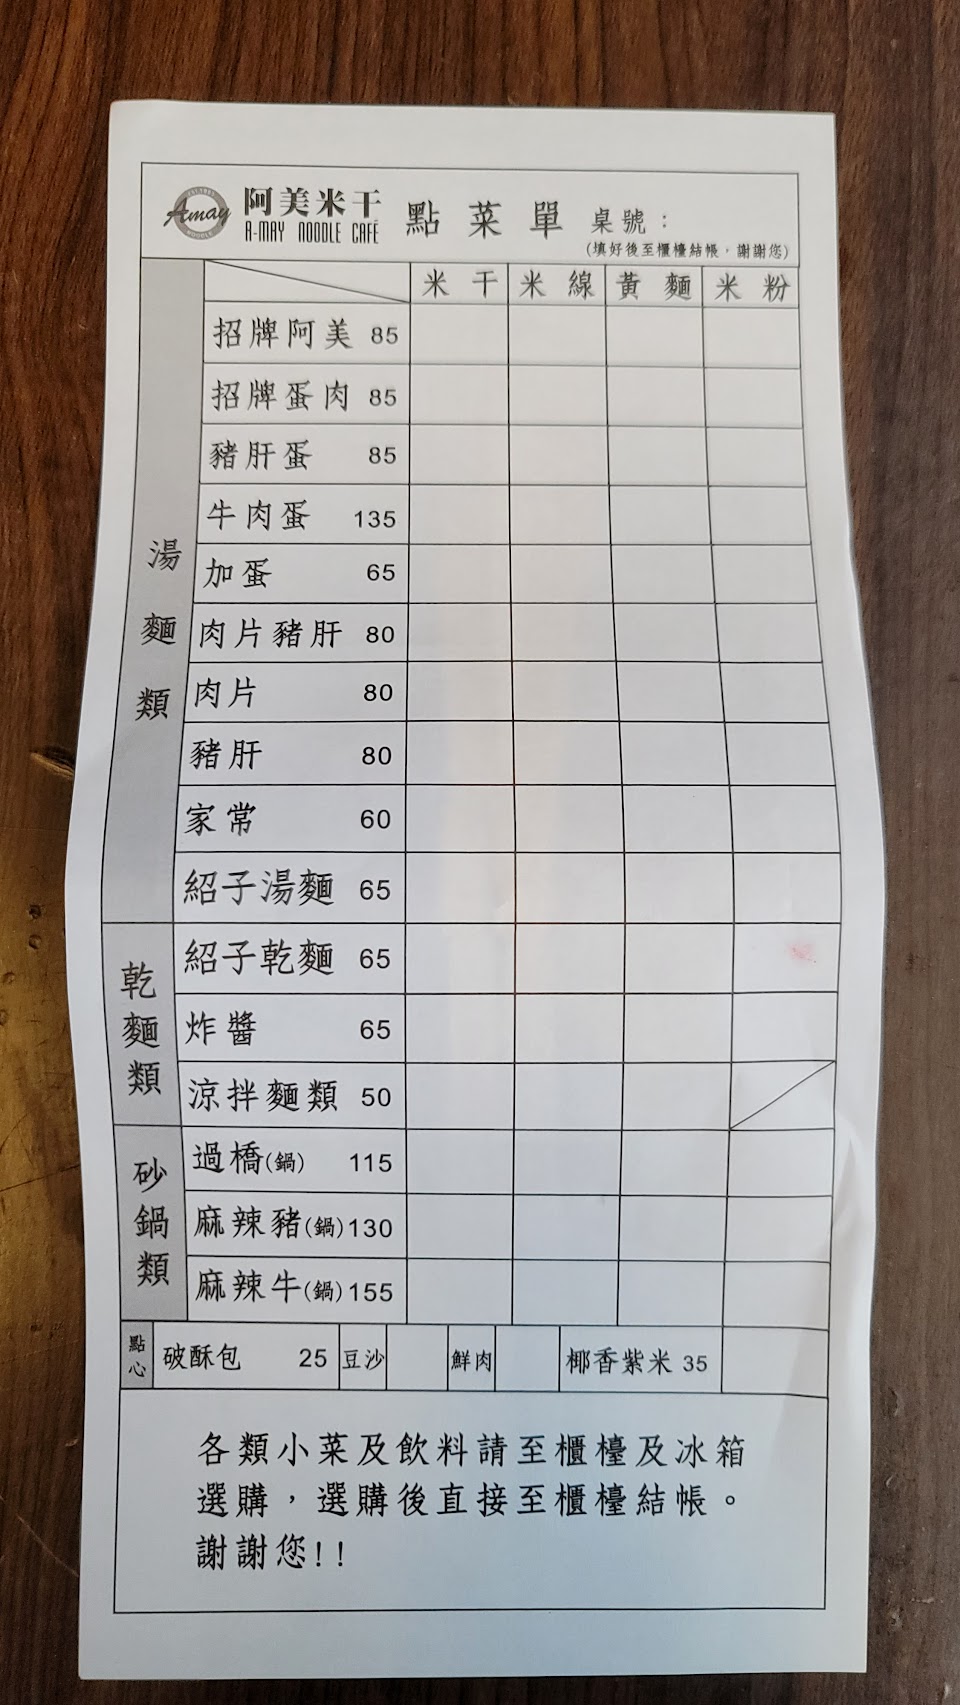 Amay
NOODLE
阿美米干
A-MAY NOODLE CAFÉ
點菜單
桌號：
(填好後至櫃檯結帳，謝謝您)
米干 米線 黃麵 米粉
湯麵類
招牌阿美 85
招牌蛋肉 85
豬肝蛋 85
牛肉蛋 135
加蛋 65
肉片豬肝 80
肉片 80
豬肝 80
家常 60
紹子湯麵 65
乾麵類
紹子乾麵 65
炸醬 65
涼拌麵類 50
砂鍋類
過橋(鍋) 115
麻辣豬(鍋) 130
麻辣牛(鍋) 155
點心 破酥包 25 豆沙 鮮肉 椰香紫米 35
各類小菜及飲料請至櫃檯及冰箱
選購，選購後直接至櫃檯結帳。
謝謝您!!